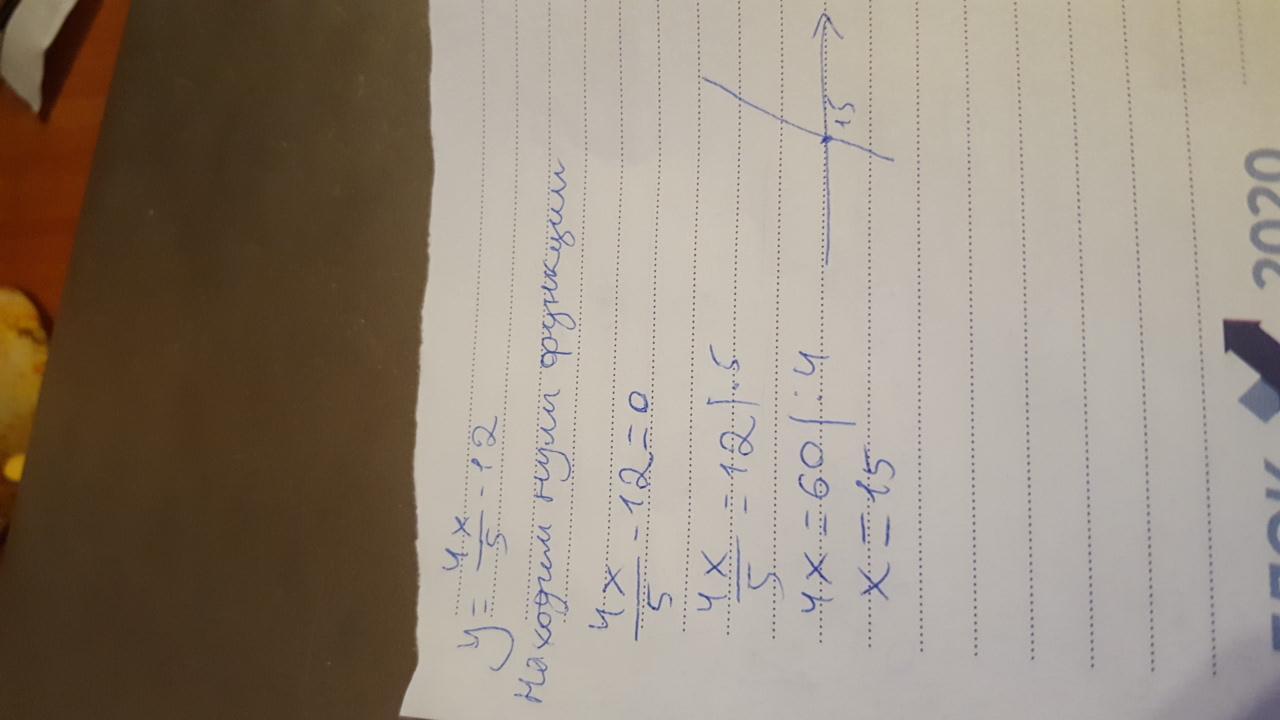 y = 4x/5 - 12
Находим нули функции
4x/5 - 12 = 0
4x/5 = 12 | · 5
4x = 60 | : 4
x = 15
15
2020